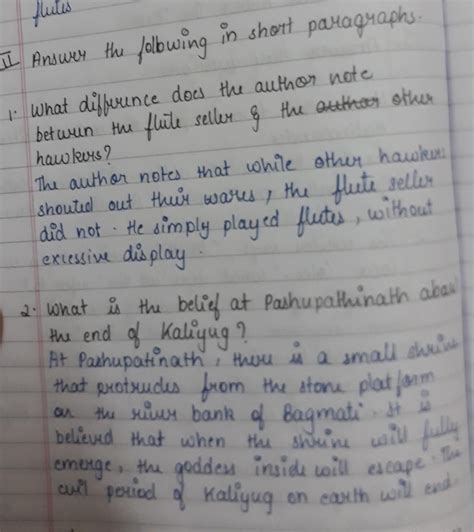 flutes
II Answer the following in short paragraphs.
1. What difference does the author note
between the flute seller & the author other
hawkers?
The author notes that while other hawkers
shouted out their wares, the flute seller
did not. He simply played flutes, without
excessive display.
2. What is the belief at Pashupathinath abou
the end of Kaliyug?
At Pashupatinath, there is a small shrine
that protrudes from the stone platform
on the river bank of Bagmati. It is
believed that when the shrine will fully
emerge, the goddess inside will escape. The
evil period of Kaliyug on earth will end.